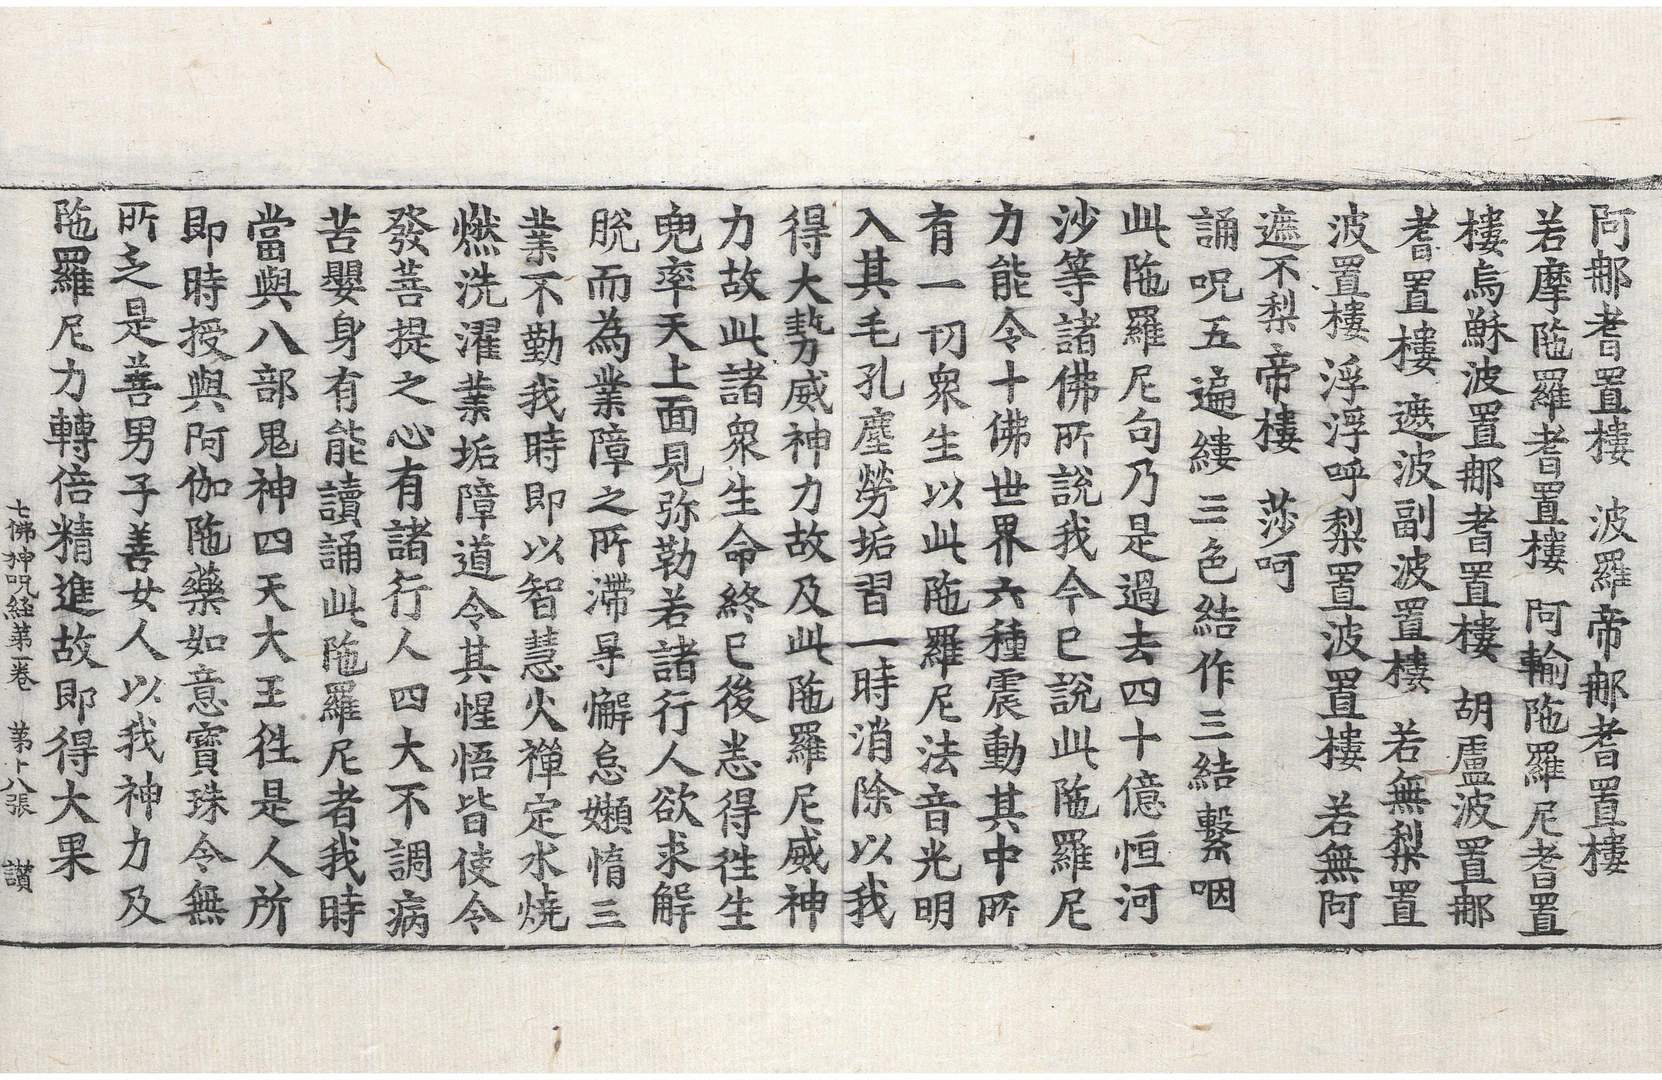 阿那耆置樓　波羅帝那耆置樓
若摩陁羅耆置樓　阿輸陁羅尼耆置
樓烏蘇波置那耆置樓　胡盧波置那
耆置樓　遮波副波置樓　若無梨置
波置樓　浮浮呼梨置波置樓　若無阿
遮不梨帝樓　莎呵
誦呪五遍縷三色結作三結繫咽
此陁羅尼句乃是過去四十億恒河
沙等諸佛所說我今已說此陁羅尼
力能令十佛世界六種震動其中所
有一切衆生以此陁羅尼法音光明
入其毛孔塵勞垢習一時消除以我
得大勢威神力故及此陁羅尼威神
力故此諸衆生命終已後悉得往生
兜率天上面見弥勒若諸行人欲求解
脫而為業障之所滯㝵懈怠嬾惰三
業不勤我時即以智慧火禪定水燒
燃洗濯業垢障道令其惺悟皆使令
發菩提之心有諸行人四大不調病
苦嬰身有能讀誦此陁羅尼者我時
當與八部鬼神四天大王往是人所
即時授與阿伽陁藥如意寶珠令無
所乏是善男子善女人以我神力及
陁羅尼力轉倍精進故即得大果
七佛神呪經第一卷　第十八張　讃